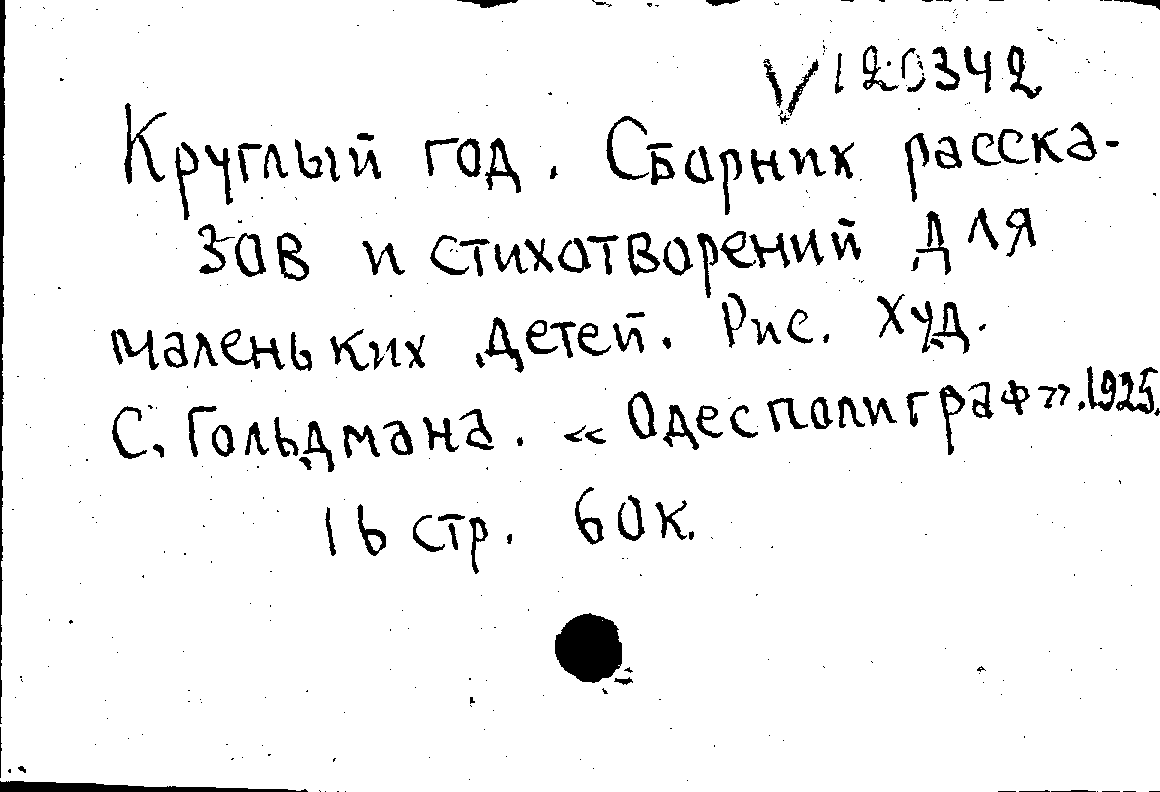 V 120342
Круглый год. Сборник расска-
зов и стихотворений для
маленьких детей. Рис. худ.
С. Гольдмана. «Одесполиграф». 1925.
16 стр. 60 к.